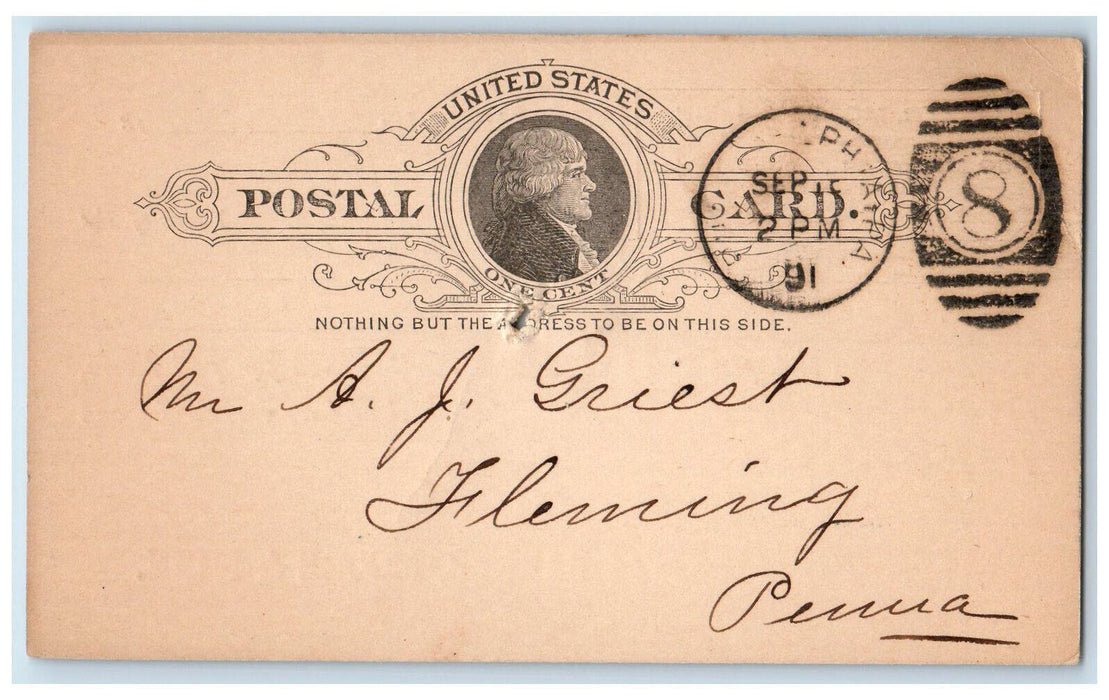 UNITED STATES
POSTAL CARD.
ONE CENT
NOTHING BUT THE ADDRESS TO BE ON THIS SIDE.
SEP 15
2 PM
91
8
Mr A. J. Griest
Fleming
Penna